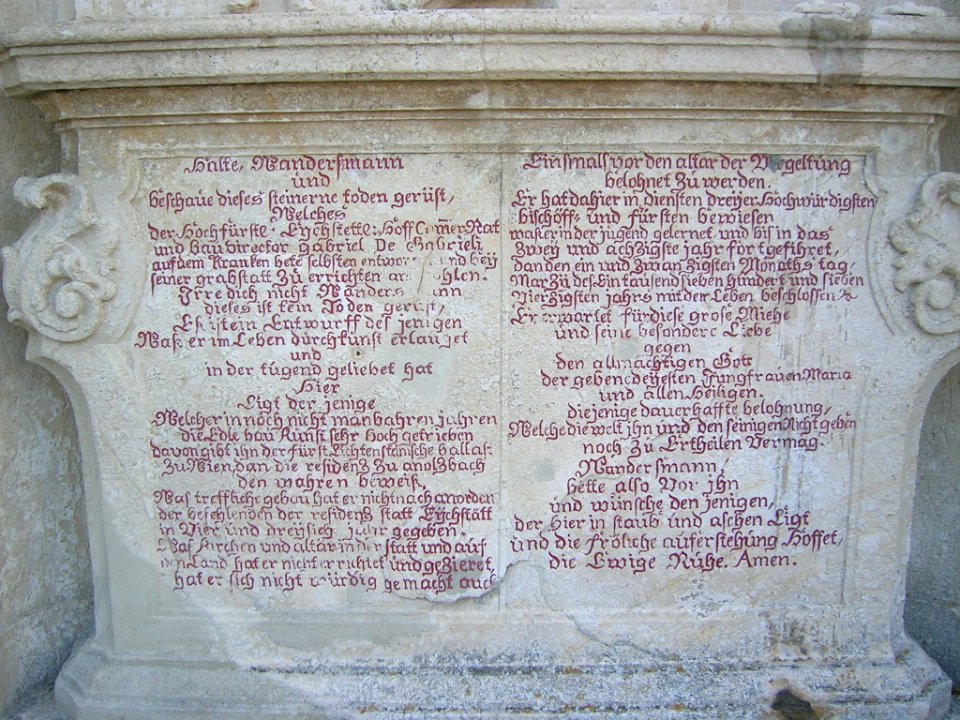 Halte, Wandersmann
und
beschaue dieses steinerne toden gerüst,
Welches
der Hochfürstl: Eychstettl: Hoff Cam̅er Rat
und bau director gabriel De Gabrieli
auf dem Kranken bete selbsten entworfen und bey
seiner grabstatt Zu errichten
Irre dich nicht Wanders
dieses ist kein Toden gerüst,
Es ist ein Entwurff des jenigen
Waß er im Leben durch kunst erlanget
und
in der tugend geliebet hat
Hier
Ligt der jenige
Welcher in noch nicht manbahren jahren
die Edle bau Kunst sehr Hoch getrieben
davon gibt ihn der fürst. Lichtenstänische ballast
Zu Wien, dan die residenz Zu anolßbach
den wahren beweiß.
Was treffliche gebau hat er nicht nach anorden
der befehlenden der residenz statt Eychstätt
in Vier und dreysich jahr gegeben.
Was Kirchen und altär in der statt und auf
den Land hat er nicht errichtet und gezieret,
hat er sich nicht würdig gemacht auch
Einsmals vor den altar der Vergeltung
belohnet Zu werden.
Er hat dahier in diensten dreyer Hochwürdigsten
bischöff- und fürsten bewiesen
waß er in der jugend gelernet und bis in das
Zwey und achzigste jahr fortgefihret,
dan den ein und Zwanzigsten Monaths tag
Marzii des Ein tausend sieben hundert und sieben
Vierzigsten jahrs mit der Leben beschlossen
Er erwartet für diese grose Miehe
und seine besondere Liebe
gegen
den allmächtigen Gott
der gebenedeyesten Jungfrauen Maria
und allen Heiligen.
die jenige dauerhaffte belohnung,
Welche die welt jhn und den seinigen Nicht geben
noch Zu Ertheilen Vermag.
Wandersmann,
bette also Vor jhn
und wünsche den jenigen,
der Hier in staub und aschen Ligt
und die fröliche auferstehung Hoffet,
die Ewige Ruhe. Amen.